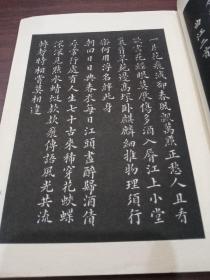 曲江二首
一片花飛減却春風飄萬點正愁人且看
欲盡花經眼莫厭傷多酒入脣江上小堂
巢翡翠苑邊高塚臥麒麟細推物理須行
樂何用浮名絆此身
朝回日日典春衣每日江頭盡醉歸酒債
尋常行處有人生七十古來稀穿花蛺蝶
深深見點水蜻蜓款款飛傳語風光共流
轉暫時相賞莫相違